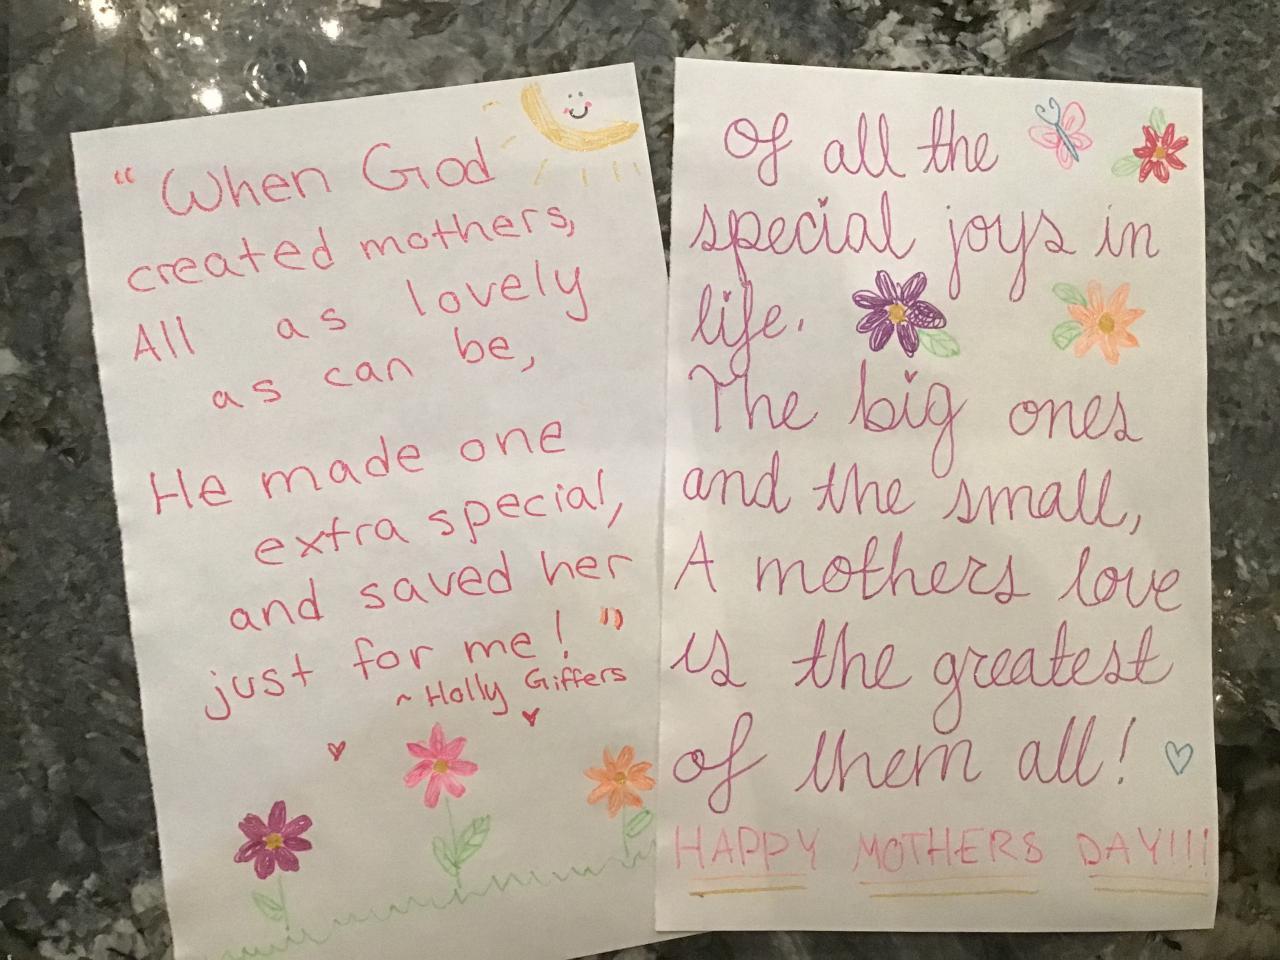 “ When God
created mothers,
All as lovely
as can be,
He made one
extra special,
and saved her
just for me! ”
~ Holly Giffers
Of all the
special joys in
life.
The big ones
and the small,
A mothers love
is the greatest
of them all!
HAPPY MOTHERS DAY!!!